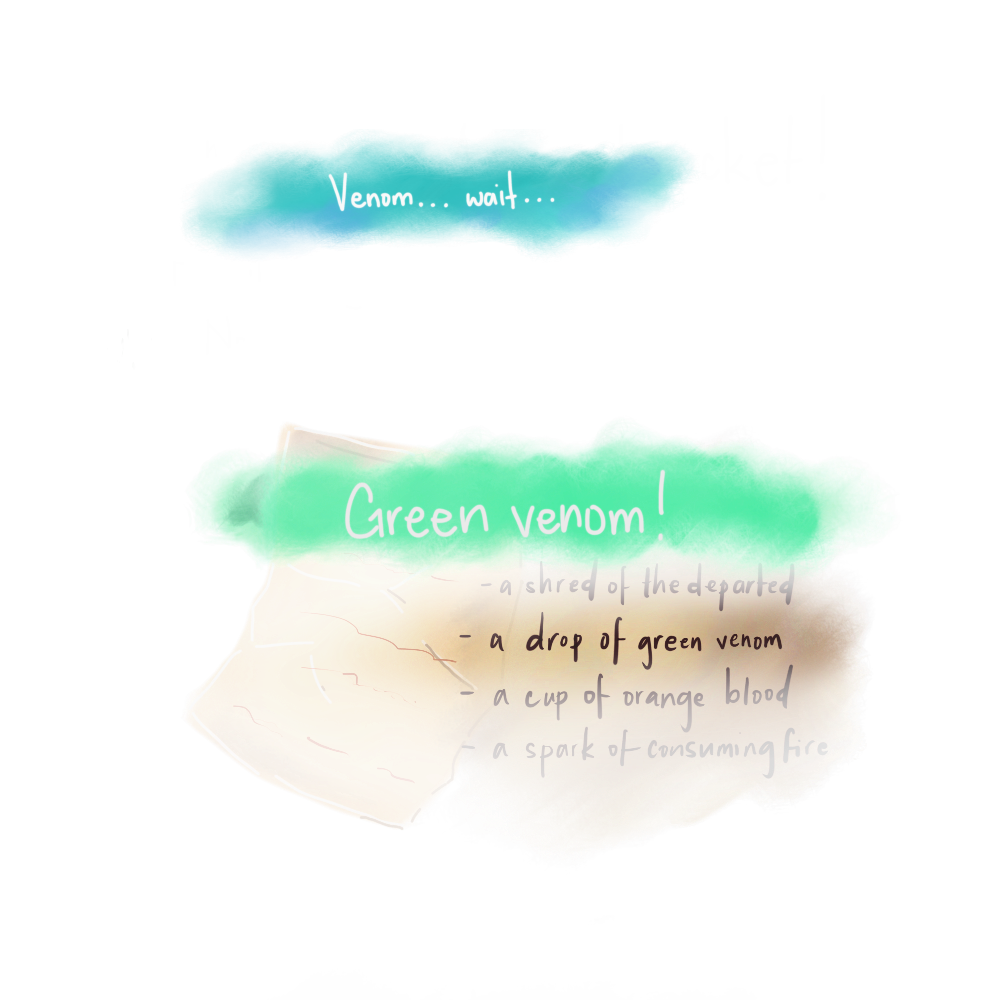 Venom... wait...
Green venom!
- a shred of the departed
- a drop of green venom
- a cup of orange blood
- a spark of consuming fire